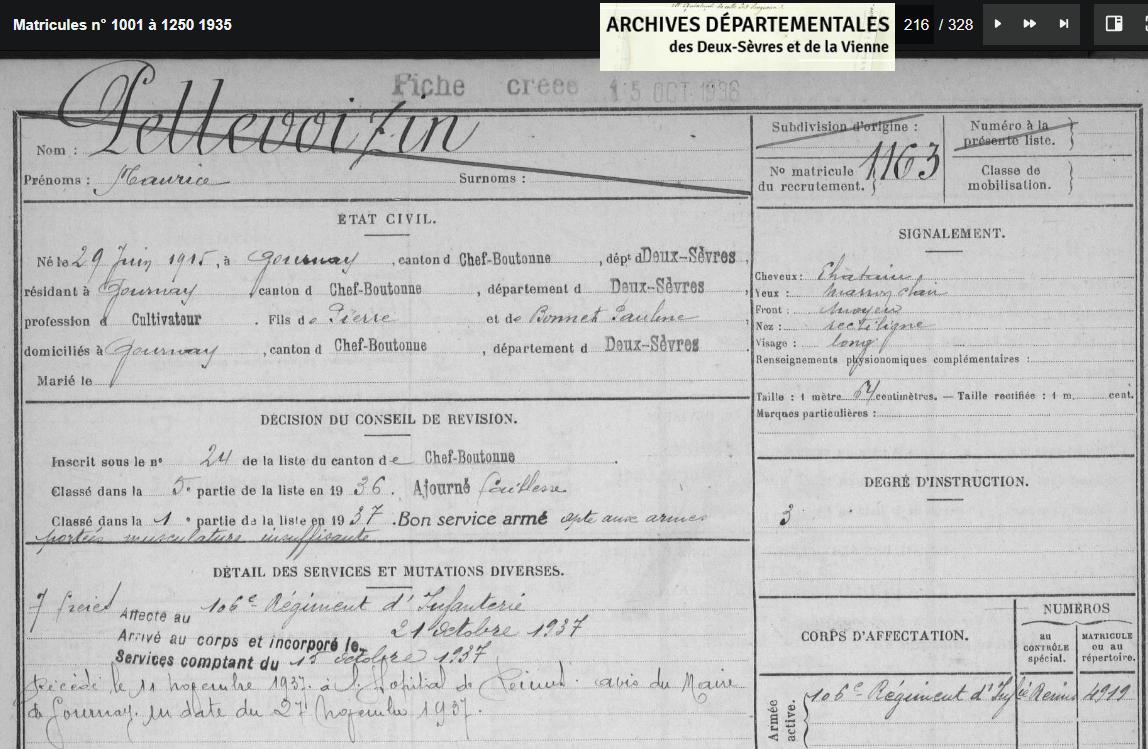 Matricules n° 1001 à 1250 1935
ARCHIVES DÉPARTEMENTALES
des Deux-Sèvres et de la Vienne
216 / 328
Fiche creee 15 OCT 1936
Nom : Pellevoizin
Prénoms : Maurice Surnoms :
Subdivision d'origine :
Numéro à la
présente liste.
No matricule
du recrutement. 1163
Classe de
mobilisation.
ÉTAT CIVIL.
Né le 29 Juin 1915, à Gournay, canton d Chef-Boutonne, dépt d Deux-Sèvres,
résidant à Gournay, canton d Chef-Boutonne, département d Deux-Sèvres,
profession d Cultivateur. Fils de Pierre et de Bonnet Pauline
domiciliés à Gournay, canton d Chef-Boutonne, département d Deux-Sèvres
Marié le
SIGNALEMENT.
Cheveux : Chatain
Yeux : marron clair
Front : moyen
Nez : rectiligne
Visage : long
Renseignements physionomiques complémentaires :
Taille : 1 mètre centimètres. — Taille rectifiée : 1 m. cent.
Marques particulières :
DÉCISION DU CONSEIL DE REVISION.
Inscrit sous le n° 24 de la liste du canton de Chef-Boutonne.
Classé dans la 5e partie de la liste en 1936. Ajourné faiblesse
Classé dans la 1e partie de la liste en 1937. Bon service armé apte aux armes
portées musculature insuffisante
DEGRÉ D'INSTRUCTION.
3
DÉTAIL DES SERVICES ET MUTATIONS DIVERSES.
Affecté au 106e Régiment d'Infanterie
Arrivé au corps et incorporé le 21 octobre 1937
Services comptant du 15 octobre 1937
Décédé le 11 novembre 1937 à l'Hopital de Reims. avis du Maire
de Gournay en date du 27 novembre 1937.
CORPS D'AFFECTATION.
NUMÉROS
au
CONTRÔLE
spécial.
MATRICULE
ou au
répertoire.
Armée
active.
106e Régiment d'Inf à Reims 4919